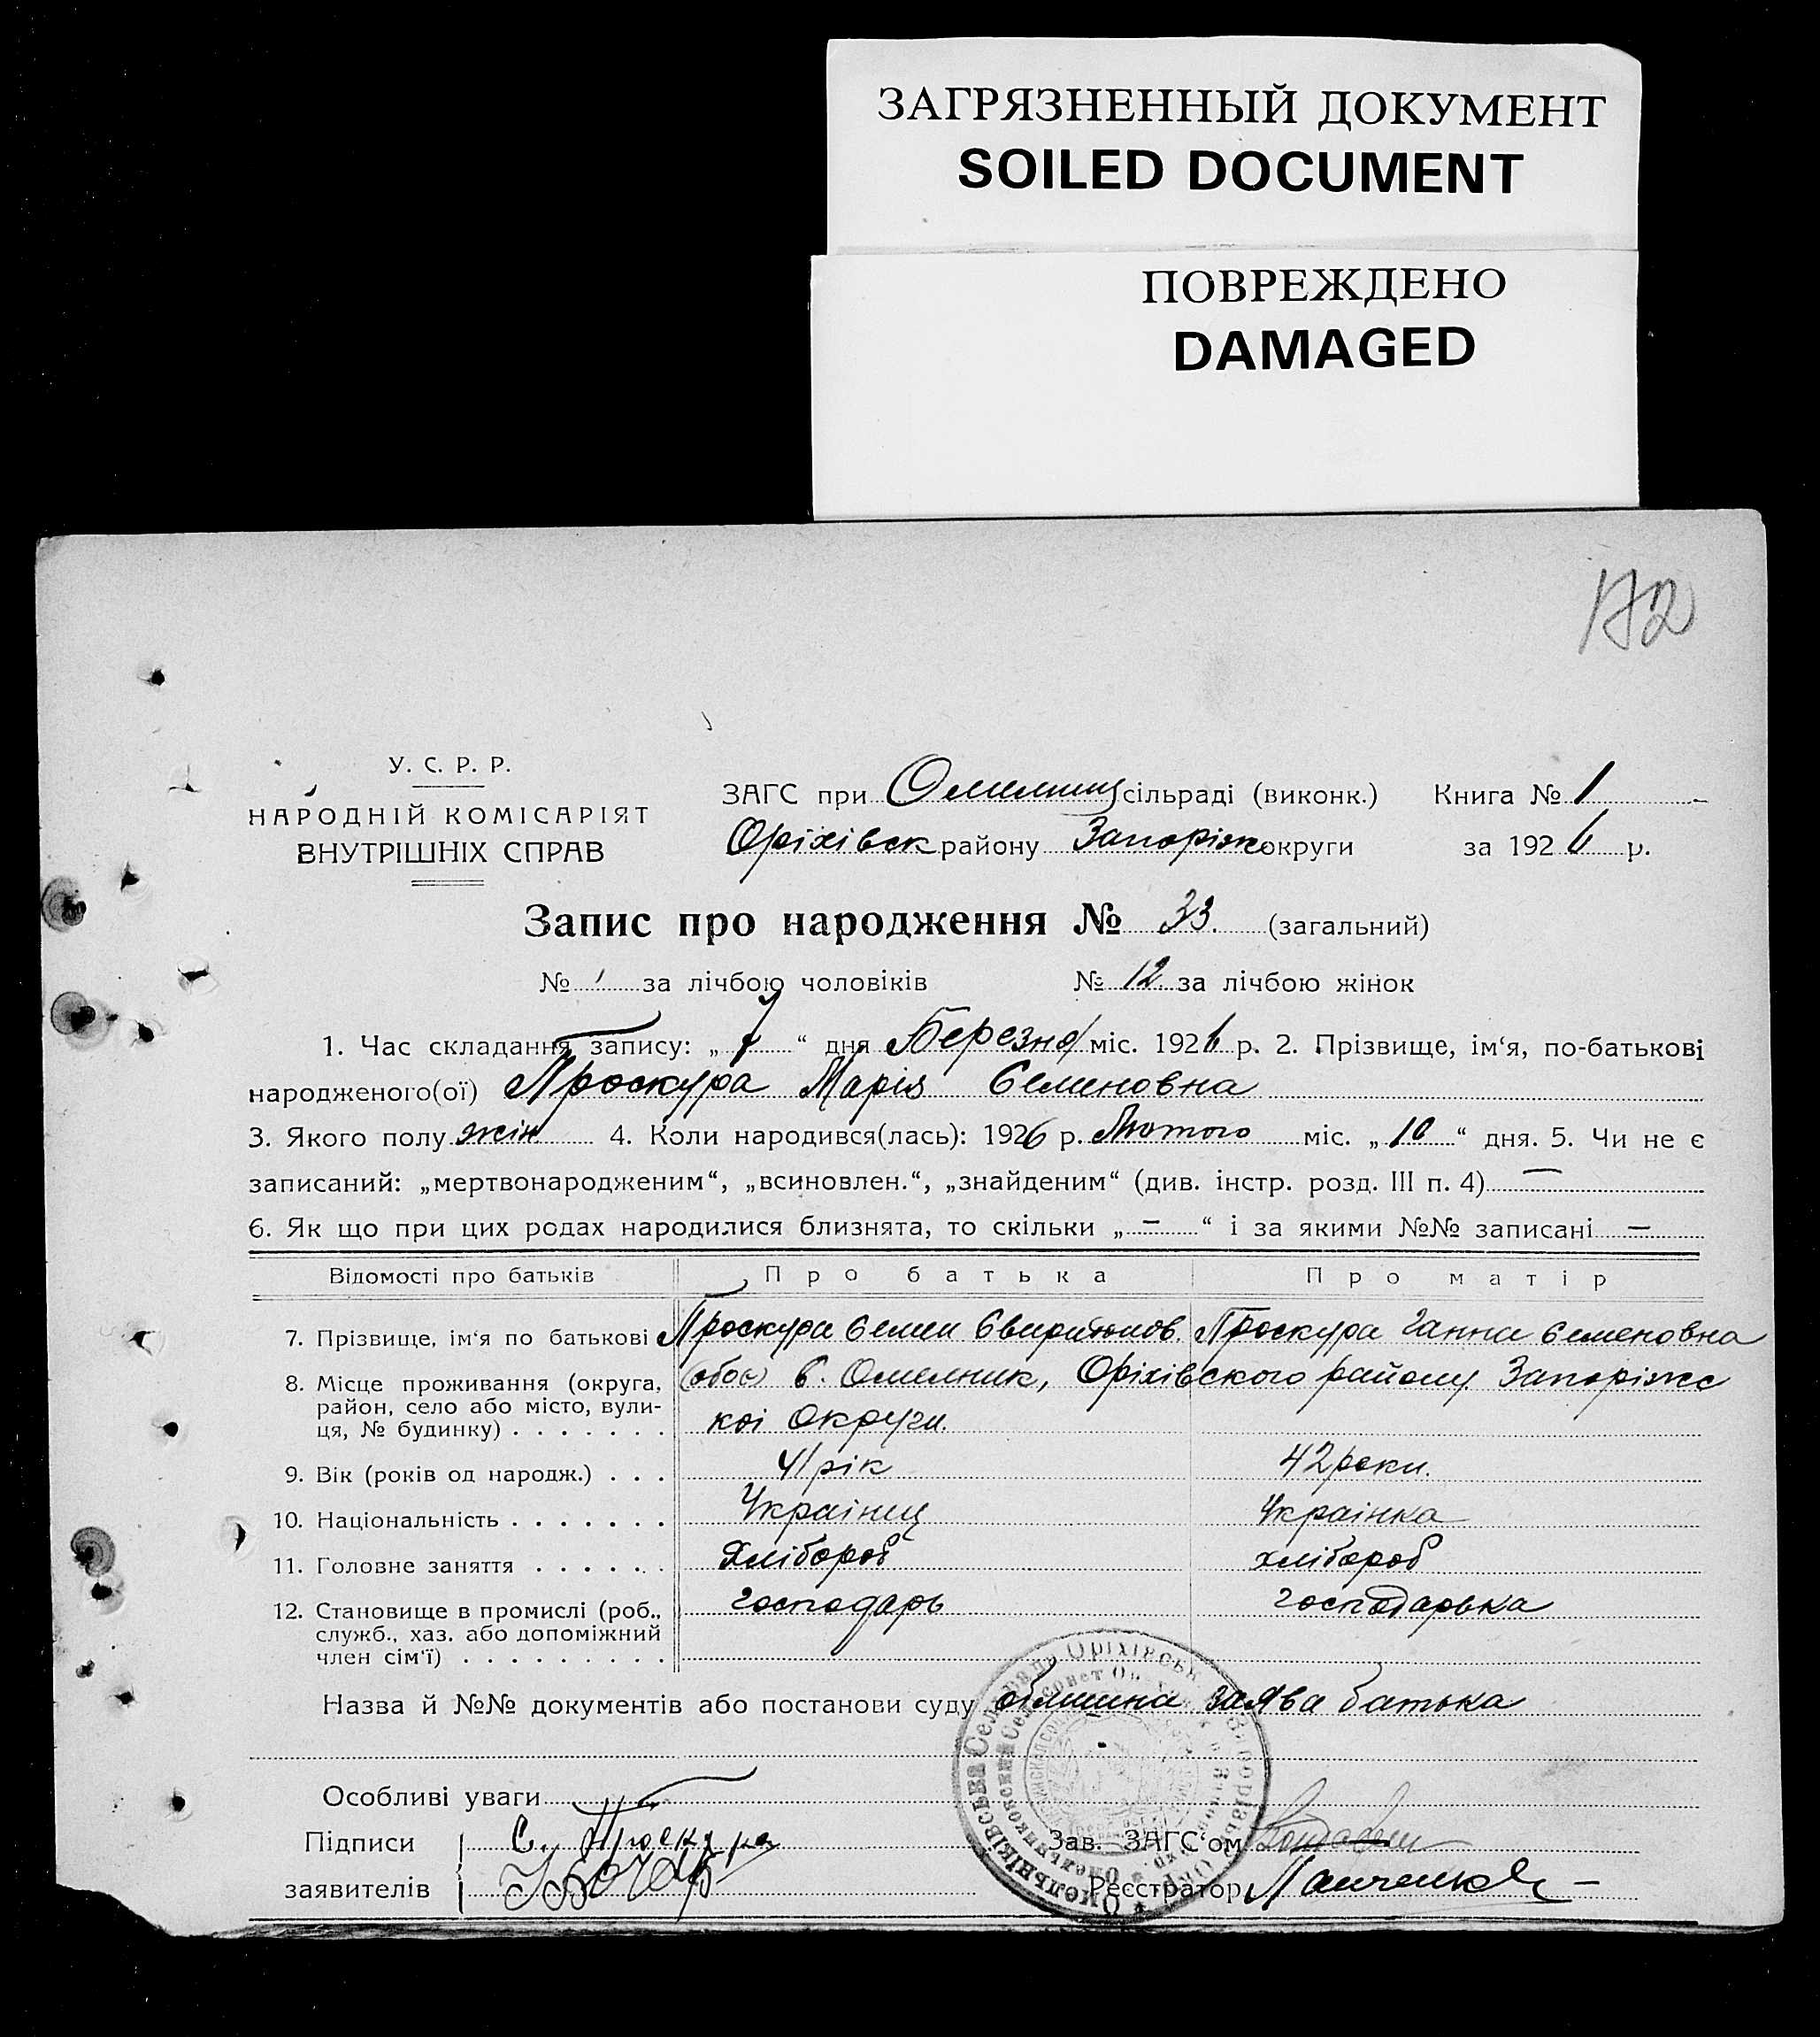 ЗАГРЯЗНЕННЫЙ ДОКУМЕНТ
SOILED DOCUMENT
ПОВРЕЖДЕНО
DAMAGED
172
У. С. Р. Р.
НАРОДНІЙ КОМІСАРІЯТ
ВНУТРІШНІХ СПРАВ
ЗАГС при Омельниц сільраді (виконк.) Книга № 1
Оріхівск району Запоріж округи за 1926 р.
Запис про народження № 33. (загальний)
№ за лічбою чоловіків № 12 за лічбою жінок
1. Час складання запису: „ 7 “ дня Березня міс. 1926 р. 2. Прізвище, ім‘я, по-батькові
народженого(ої) Проскура Марія Семеновна
3. Якого полу жін 4. Коли народився(лась): 1926 р. Лютого міс. „ 10 “ дня. 5. Чи не є
записаний: „мертвонародженим“, „всиновлен.“, „знайденим“ (див. інстр. розд. III п. 4) —
6. Як що при цих родах народилися близнята, то скільки „ — “ і за якими №№ записані —
Відомості про батьків Про батька Про матір
7. Прізвище, ім‘я по батькові Проскура Семен Проскура Ганна Семеновна
8. Місце проживання (округа, (обоє) с. Омелник, Оріхівского району Запоріжс
район, село або місто, вули-
ця, № будинку) . . . . . . . коі Округи.
9. Вік (років од народж.) . . . 41 рік 42 роки.
10. Національність . . . . . . . Украінец Украінка
11. Головне заняття . . . . . . Хлібороб хлібороб
12. Становище в промислі (роб., господарь господарька
служб., хаз. або допоміжний
член сім‘ї) . . . . . . . . .
Назва й №№ документів або постанови суду заява батька
Особливі уваги
Підписи С. Проскура Зав. ЗАГС‘ом
заявителів Реєстратор Панченко